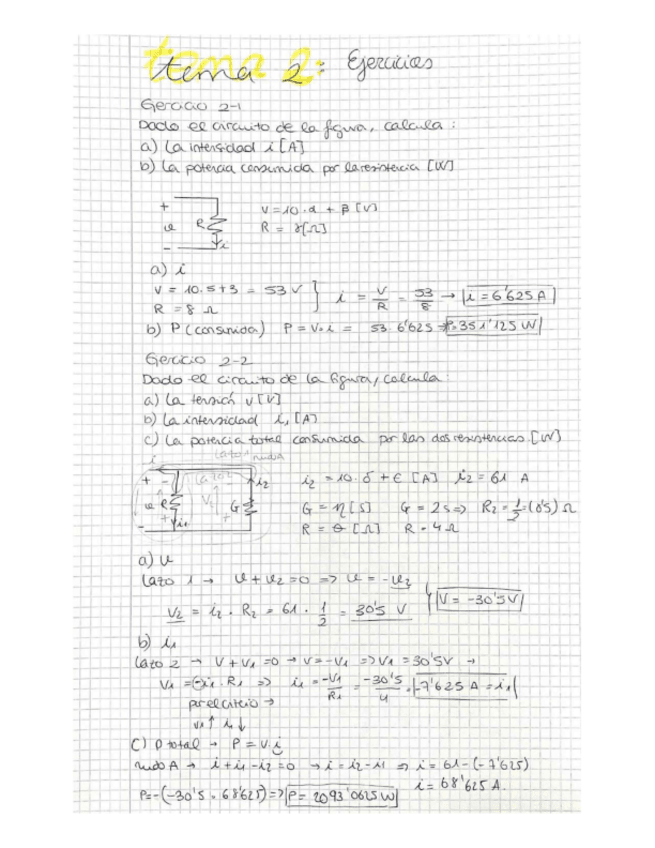 tema 2: Ejercicios
Ejercicio 2-1
Dado el circuito de la figura, calcula:
a) La intensidad i [A]
b) La potencia consumida por la resistencia [W]
+
V = 10·α + β [V]
R
R = γ[Ω]
i
a) i
V = 10·5+3 = 53 V
R = 8 Ω
i = V/R = 53/8 → i = 6'625 A
b) P (consumida) P = V·i = 53·6'625 → P=351'125 W
Ejercicio 2-2
Dado el circuito de la figura, calcula:
a) La tensión v [V]
b) La intensidad i₁ [A]
c) La potencia total consumida por las dos resistencias. [W]
i lazo 1 nudo A
lazo 2
i₂ = 10·δ + ε [A] i₂ = 61 A
G = η [S] G = 2 s => R₂ = 1/2 = (0'5) Ω
R = θ [Ω] R = 4 Ω
a) v
lazo 1 → v + v₂ = 0 => v = -v₂
V₂ = i₂ · R₂ = 61 · 1/2 = 30'5 V
V = -30'5V
b) i₁
lazo 2 → V + V₁ = 0 → V = -V₁ => V₁ = 30'5V →
V₁ = -i₁ · R₁ => i₁ = -V₁/R₁ = -30'5/4 = -7'625 A = i₁
por el criterio →
v₁↑ i₁↓
C) P total → P = V·i
nudo A → i + i₁ - i₂ = 0 → i = i₂ - i₁ => i = 61-(-7'625)
i = 68'625 A.
P = -(-30'5 · 68'625) => P = 2093'0625 W